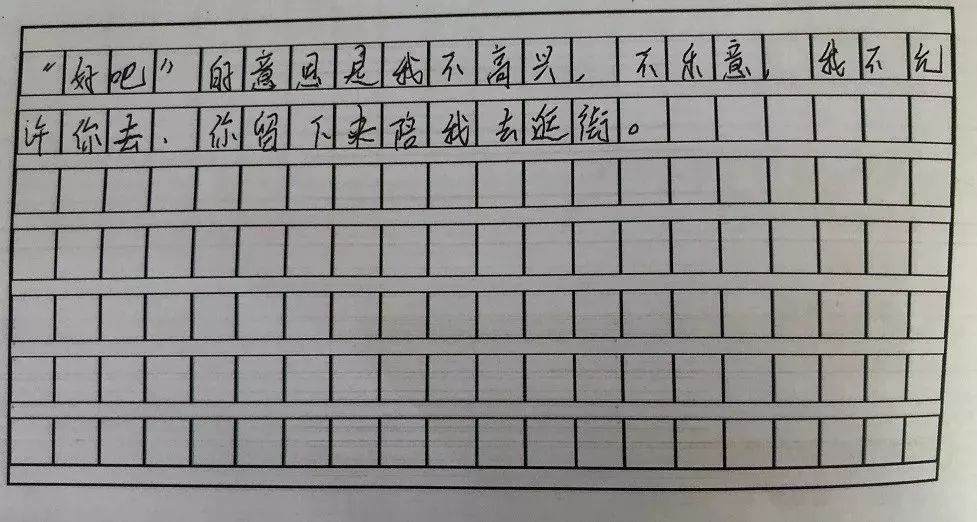 “好吧”的意思是我不高兴，不乐意，我不允
许你去，你留下来陪我去逛街。